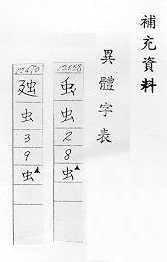 補充資料
異體字表
虫
2
8
虫
虫
3
9
虫